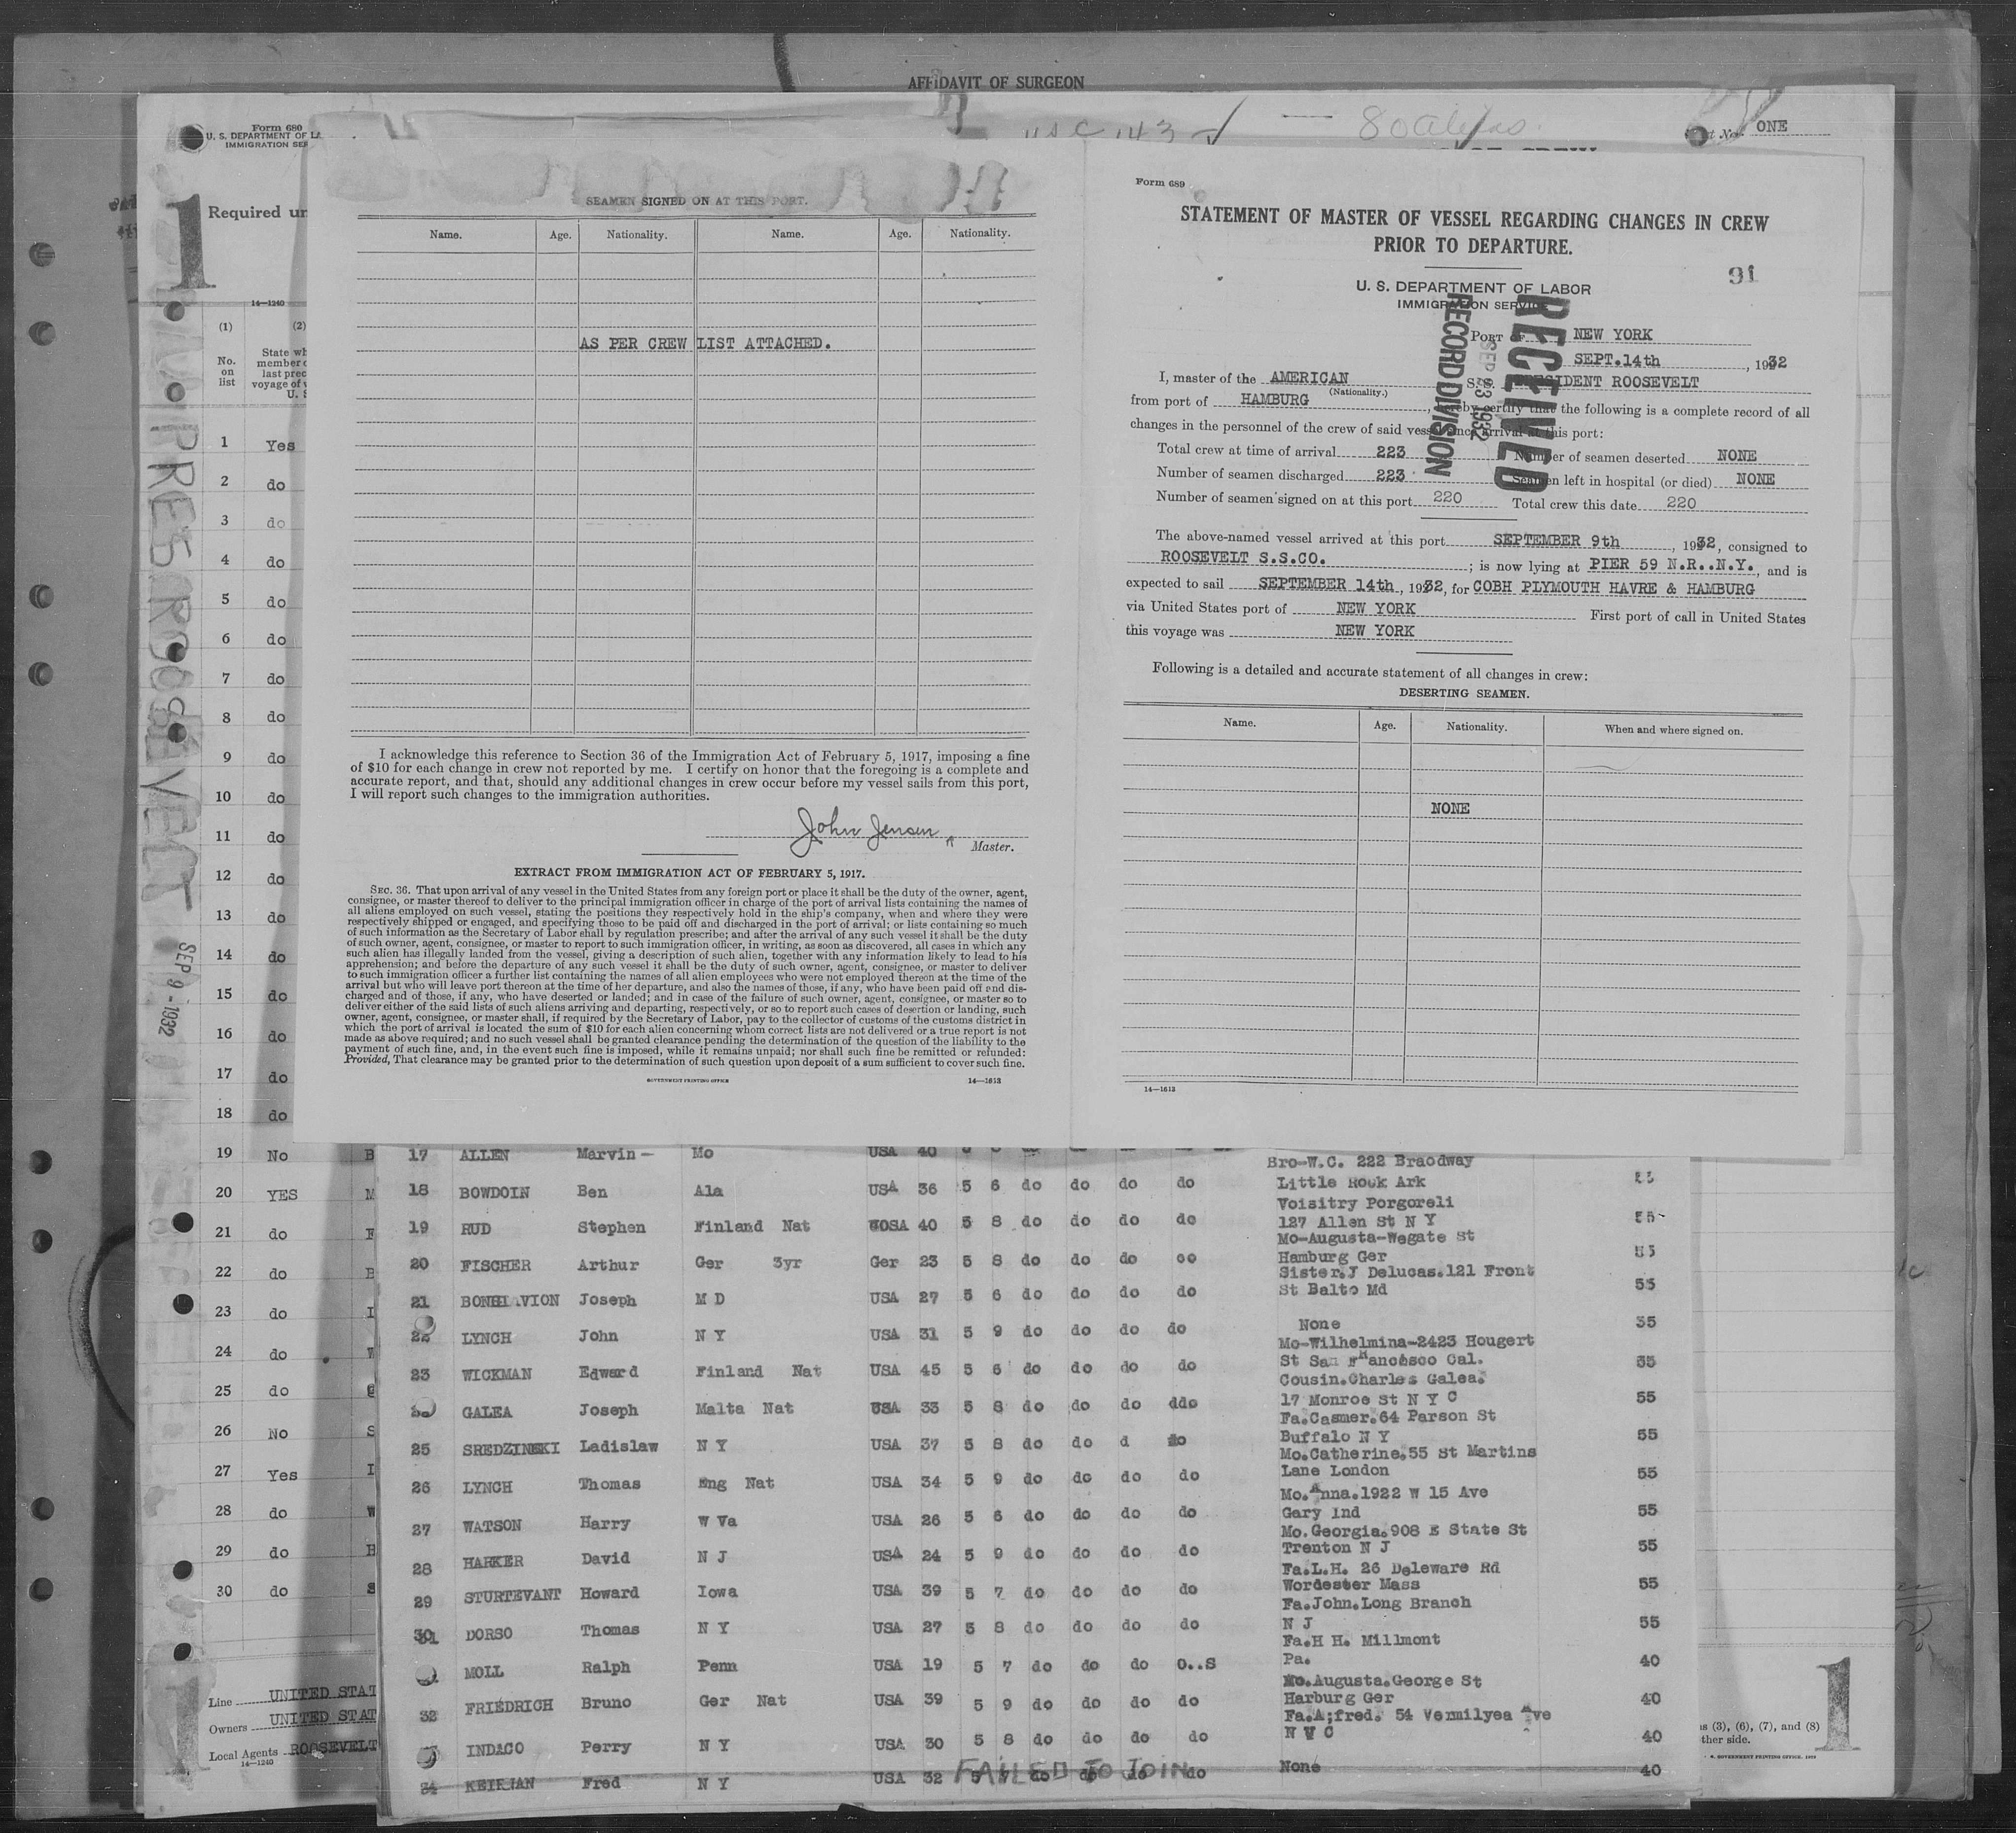 AFFIDAVIT OF SURGEON
Form 680
U. S. DEPARTMENT OF LA
IMMIGRATION SER
1
Required un
14—1240
(1)
(2)
No.
on
list
State wh
member o
last prec
voyage of v
U. S
1 Yes
2 do
3 do
4 do
5 do
6 do
7 do
8 do
9 do
10 do
11 do
12 do
13 do
14 do
15 do
16 do
17 do
18 do
19 No B
20 YES M
21 do F
22 do B
23 do I
24 do
25 do
26 No S
27 Yes I
28 do W
29 do H
30 do S
PRES ROOSEVELT
SEP 9 - 1932
Line UNITED STAT
Owners UNITED STAT
Local Agents ROOSEVELT
14—1240
80 aliens.
ONE
SEAMEN SIGNED ON AT THIS PORT.
Name. Age. Nationality. Name. Age. Nationality.
AS PER CREW LIST ATTACHED.
I acknowledge this reference to Section 36 of the Immigration Act of February 5, 1917, imposing a fine
of $10 for each change in crew not reported by me. I certify on honor that the foregoing is a complete and
accurate report, and that, should any additional changes in crew occur before my vessel sails from this port,
I will report such changes to the immigration authorities.
John Jensen
Master.
EXTRACT FROM IMMIGRATION ACT OF FEBRUARY 5, 1917.
SEC. 36. That upon arrival of any vessel in the United States from any foreign port or place it shall be the duty of the owner, agent,
consignee, or master thereof to deliver to the principal immigration officer in charge of the port of arrival lists containing the names of
all aliens employed on such vessel, stating the positions they respectively hold in the ship's company, when and where they were
respectively shipped or engaged, and specifying those to be paid off and discharged in the port of arrival; or lists containing so much
of such information as the Secretary of Labor shall by regulation prescribe; and after the arrival of any such vessel it shall be the duty
of such owner, agent, consignee, or master to report to such immigration officer, in writing, as soon as discovered, all cases in which any
such alien has illegally landed from the vessel, giving a description of such alien, together with any information likely to lead to his
apprehension; and before the departure of any such vessel it shall be the duty of such owner, agent, consignee, or master to deliver
to such immigration officer a further list containing the names of all alien employees who were not employed thereon at the time of the
arrival but who will leave port thereon at the time of her departure, and also the names of those, if any, who have been paid off and dis-
charged and of those, if any, who have deserted or landed; and in case of the failure of such owner, agent, consignee, or master so to
deliver either of the said lists of such aliens arriving and departing, respectively, or so to report such cases of desertion or landing, such
owner, agent, consignee, or master shall, if required by the Secretary of Labor, pay to the collector of customs of the customs district in
which the port of arrival is located the sum of $10 for each alien concerning whom correct lists are not delivered or a true report is not
made as above required; and no such vessel shall be granted clearance pending the determination of the question of the liability to the
payment of such fine, and, in the event such fine is imposed, while it remains unpaid; nor shall such fine be remitted or refunded:
Provided, That clearance may be granted prior to the determination of such question upon deposit of a sum sufficient to cover such fine.
GOVERNMENT PRINTING OFFICE
14—1613
Form 689
STATEMENT OF MASTER OF VESSEL REGARDING CHANGES IN CREW
PRIOR TO DEPARTURE.
91
U. S. DEPARTMENT OF LABOR
IMMIGRATION SERVICE
RECEIVED
SEP 23 1932
RECORD DIVISION
PORT OF NEW YORK
SEPT.14th, 1932
I, master of the AMERICAN S.S. PRESIDENT ROOSEVELT
(Nationality.)
from port of HAMBURG, hereby certify that the following is a complete record of all
changes in the personnel of the crew of said vessel since arrival at this port:
Total crew at time of arrival 223 Number of seamen deserted NONE
Number of seamen discharged 223 Seamen left in hospital (or died) NONE
Number of seamen signed on at this port 220 Total crew this date 220
The above-named vessel arrived at this port SEPTEMBER 9th, 1932, consigned to
ROOSEVELT S.S.CO.; is now lying at PIER 59 N.R..N.Y., and is
expected to sail SEPTEMBER 14th, 1932, for COBH PLYMOUTH HAVRE & HAMBURG
via United States port of NEW YORK First port of call in United States
this voyage was NEW YORK
Following is a detailed and accurate statement of all changes in crew:
DESERTING SEAMEN.
Name. Age. Nationality. When and where signed on.
NONE
14—1613
17 ALLEN Marvin- Mo USA 40
Bro-W.C. 222 Braodway
18 BOWDOIN Ben Ala USA 36 5 6 do do do do Little Rock Ark
Voisitry Porgoreli
19 RUD Stephen Finland Nat USA 40 5 8 do do do do 127 Allen St N Y 55
Mo-Augusta-Wegate St
20 FISCHER Arthur Ger 3yr Ger 23 5 8 do do do Hamburg Ger 55
Sister.J Delucas.121 Front
21 Joseph M D USA 27 5 6 do do do do St Balto Md 55
22 LYNCH John N Y USA 31 5 9 do do do do None 35
Mo-Wilhelmina-2423 Hougert
23 WICKMAN Edward Finland Nat USA 45 5 6 do do do do St San Francesco Cal. 35
Cousin.Charles Galea.
GALEA Joseph Malta Nat USA 33 5 8 do do do ddo 17 Monroe St N Y C 55
Fa.Casmer.64 Parson St
25 SREDZINSKI Ladislaw N Y USA 37 5 8 do do d do Buffalo N Y 55
Mo.Catherine.55 St Martins
26 LYNCH Thomas Eng Nat USA 34 5 9 do do do do Lane London 55
Mo.Anna.1922 W 15 Ave
27 WATSON Harry W Va USA 26 5 6 do do do do Gary Ind 55
Mo.Georgia.908 E State St
28 HARKER David N J USA 24 5 9 do do do do Trenton N J 55
Fa.L.H. 26 Deleware Rd
29 STURTEVANT Howard Iowa USA 39 5 7 do do do do Wordester Mass 55
Fa.John.Long Branch
30 DORSO Thomas N Y USA 27 5 8 do do do do N J 55
Fa.H H. Millmont
MOLL Ralph Penn USA 19 5 7 do do do O..S Pa. 40
Mo.Augusta.George St
32 FRIEDRICH Bruno Ger Nat USA 39 5 9 do do do do Harburg Ger 40
Fa.A;fred. 54 Vermilyea Ave
INDACO Perry N Y USA 30 5 8 do do do do N Y C 40
34 Fred N Y USA 32 5 7 do do do do None 40
FAILED TO JOIN
s (3), (6), (7), and (8)
ther side.
1